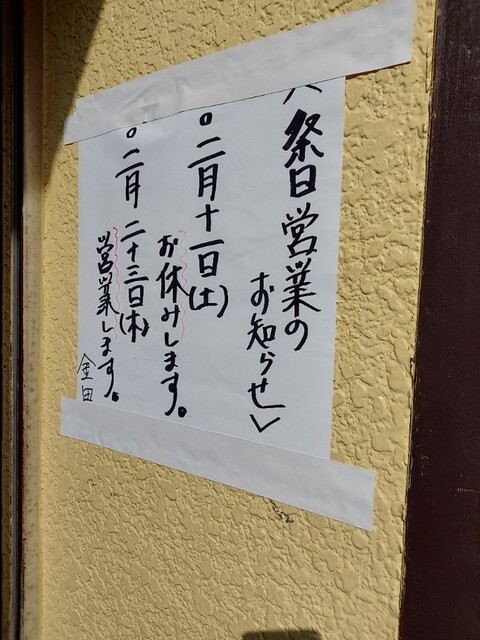 〈祭日営業の
お知らせ〉
○二月十一日(土)
お休みします。
○二月二十三日(木)
営業します。
金田